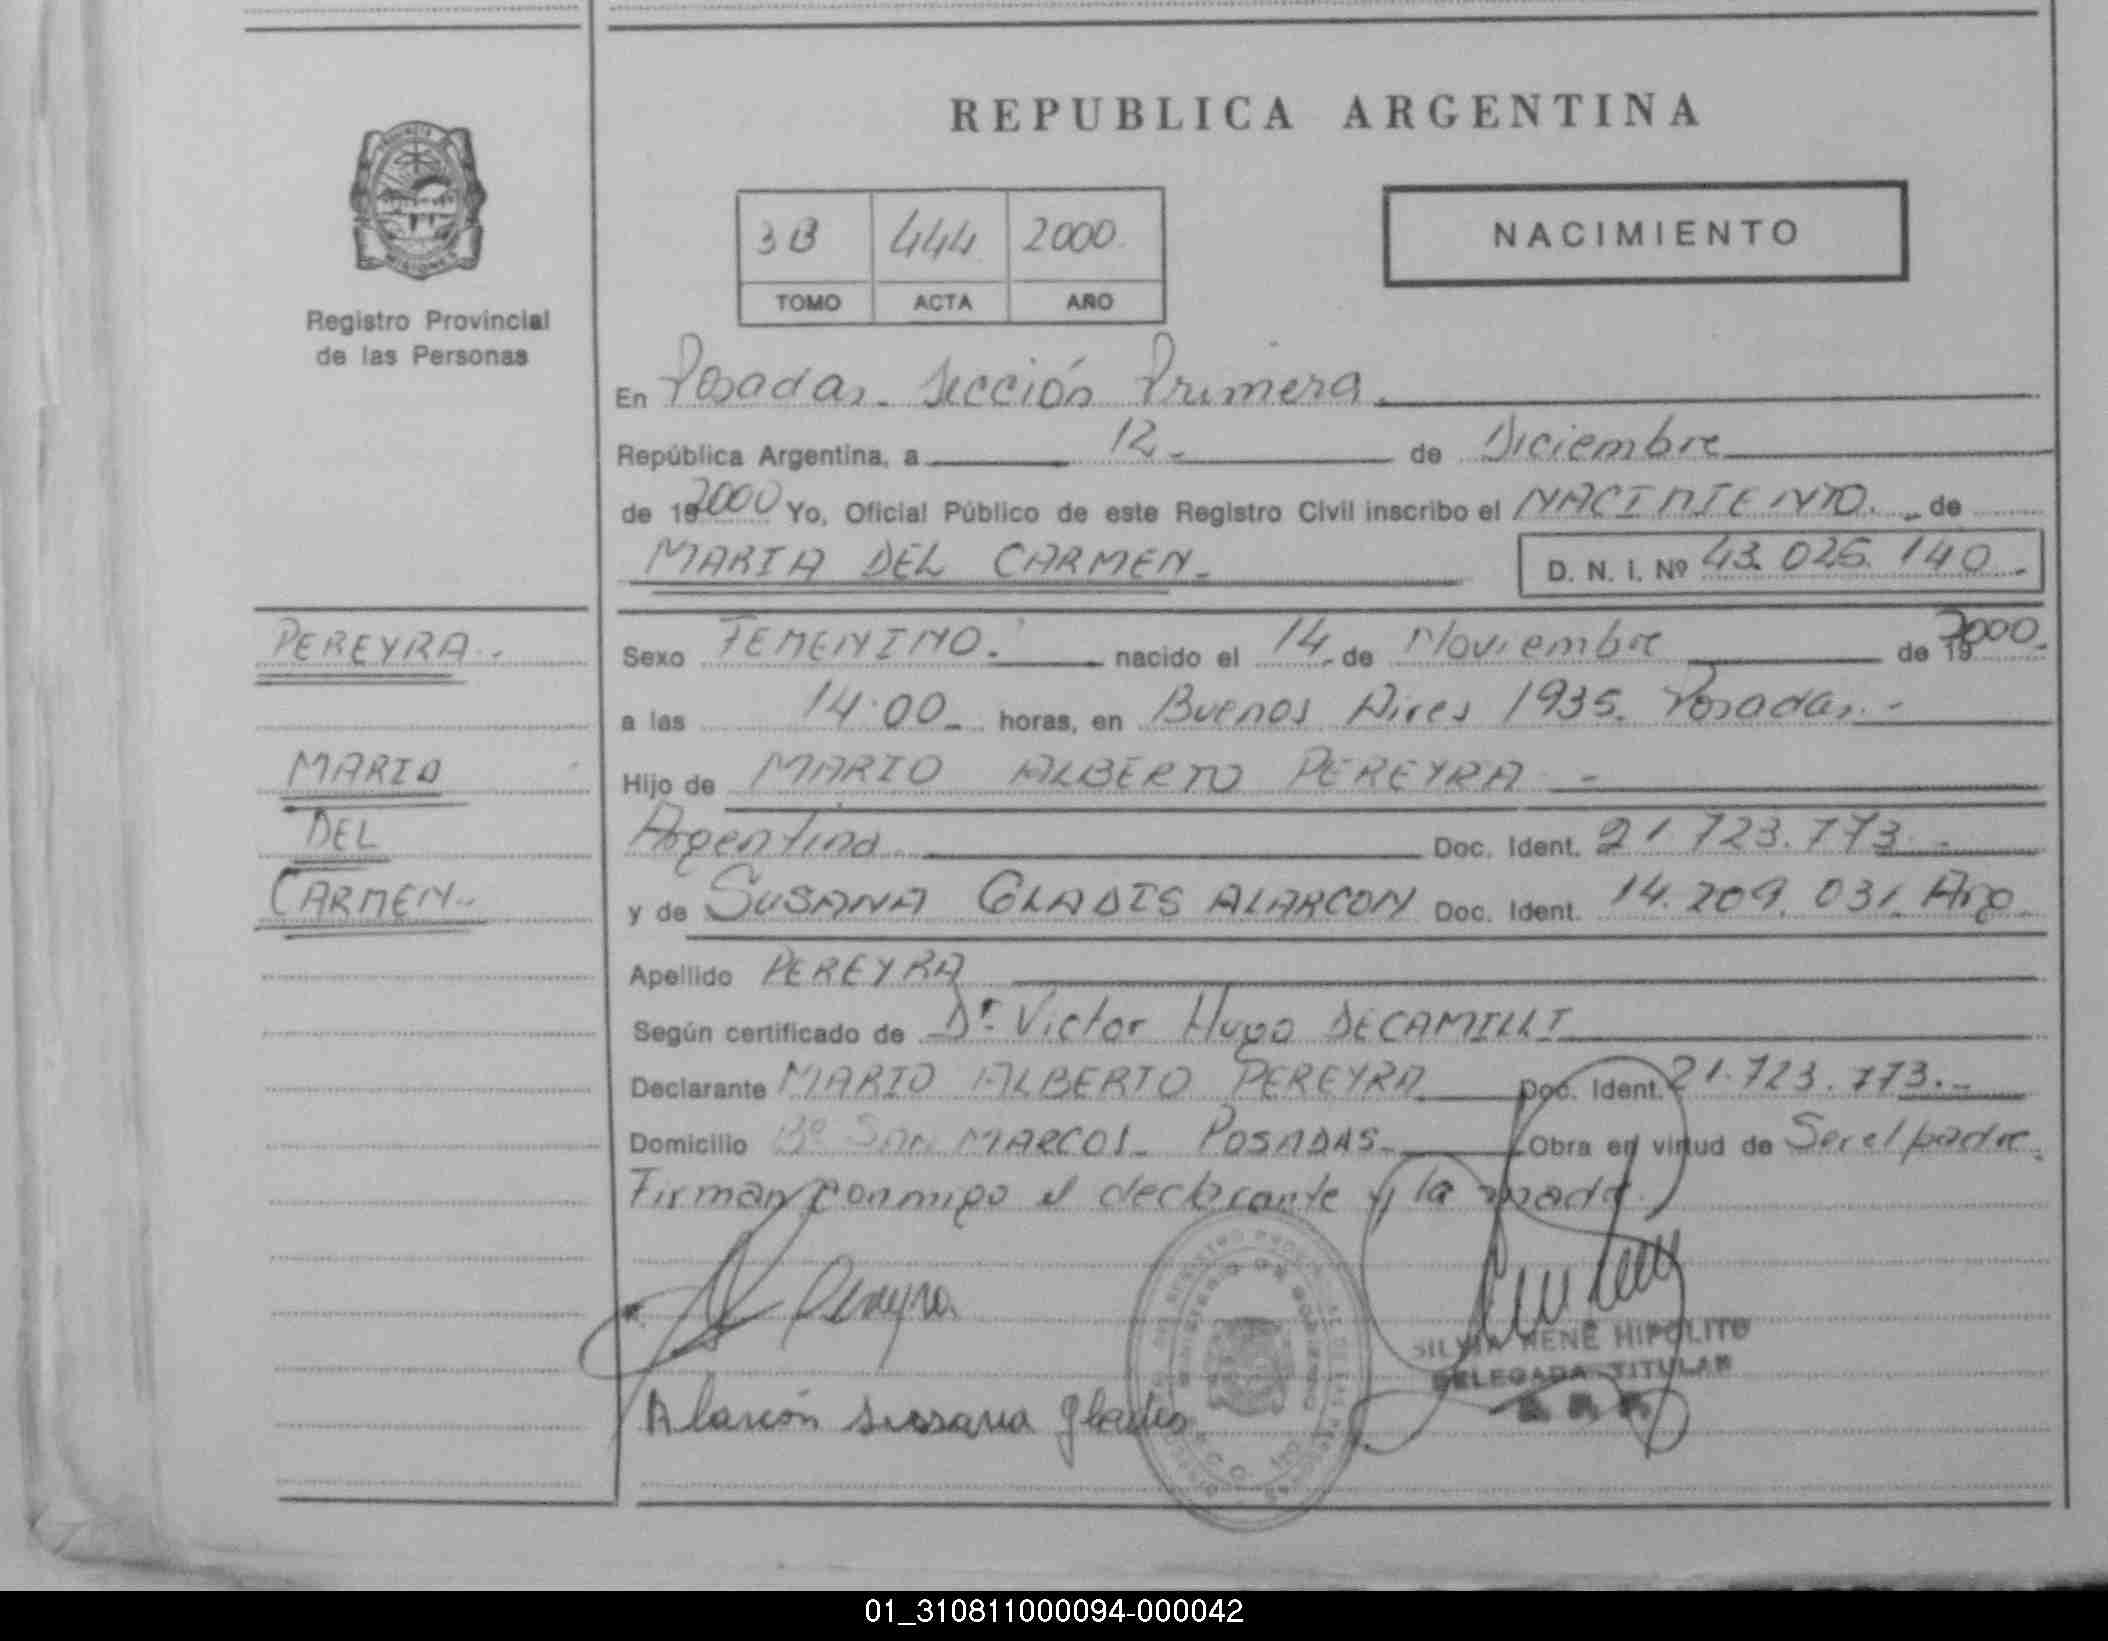 REPUBLICA ARGENTINA
MISIONES
Registro Provincial
de las Personas
3B 444 2000
TOMO ACTA AÑO
NACIMIENTO
En Posadas. Sección Primera.
República Argentina, a 12 de Diciembre
de 192000 Yo, Oficial Público de este Registro Civil inscribo el NACIMIENTO. de
MARIA DEL CARMEN. D. N. I. Nº 43.026.140.
PEREYRA.
Sexo FEMENINO. nacido el 14 de Noviembre de 192000.
a las 14.00 horas, en Buenos Aires 1935. Posadas.
MARIA
Hijo de MARIO ALBERTO PEREYRA
DEL
Argentino Doc. Ident. 21.723.773.
CARMEN.
y de SUSANA GLADIS ALARCON Doc. Ident. 14.209.031. Arg.
Apellido PEREYRA
Según certificado de Dr. Victor Hugo DECAMILLI
Declarante MARIO ALBERTO PEREYRA Doc. Ident. 21.723.773.
Domicilio Bº SAN MARCOS. POSADAS. Obra en virtud de Ser el padre.
Firman conmigo el declarante y la madre.
Pereyra
SILVIA RENE HIPOLITO
DELEGADA TITULAR
Alarcón Sussana Gladis
01_310811000094-000042